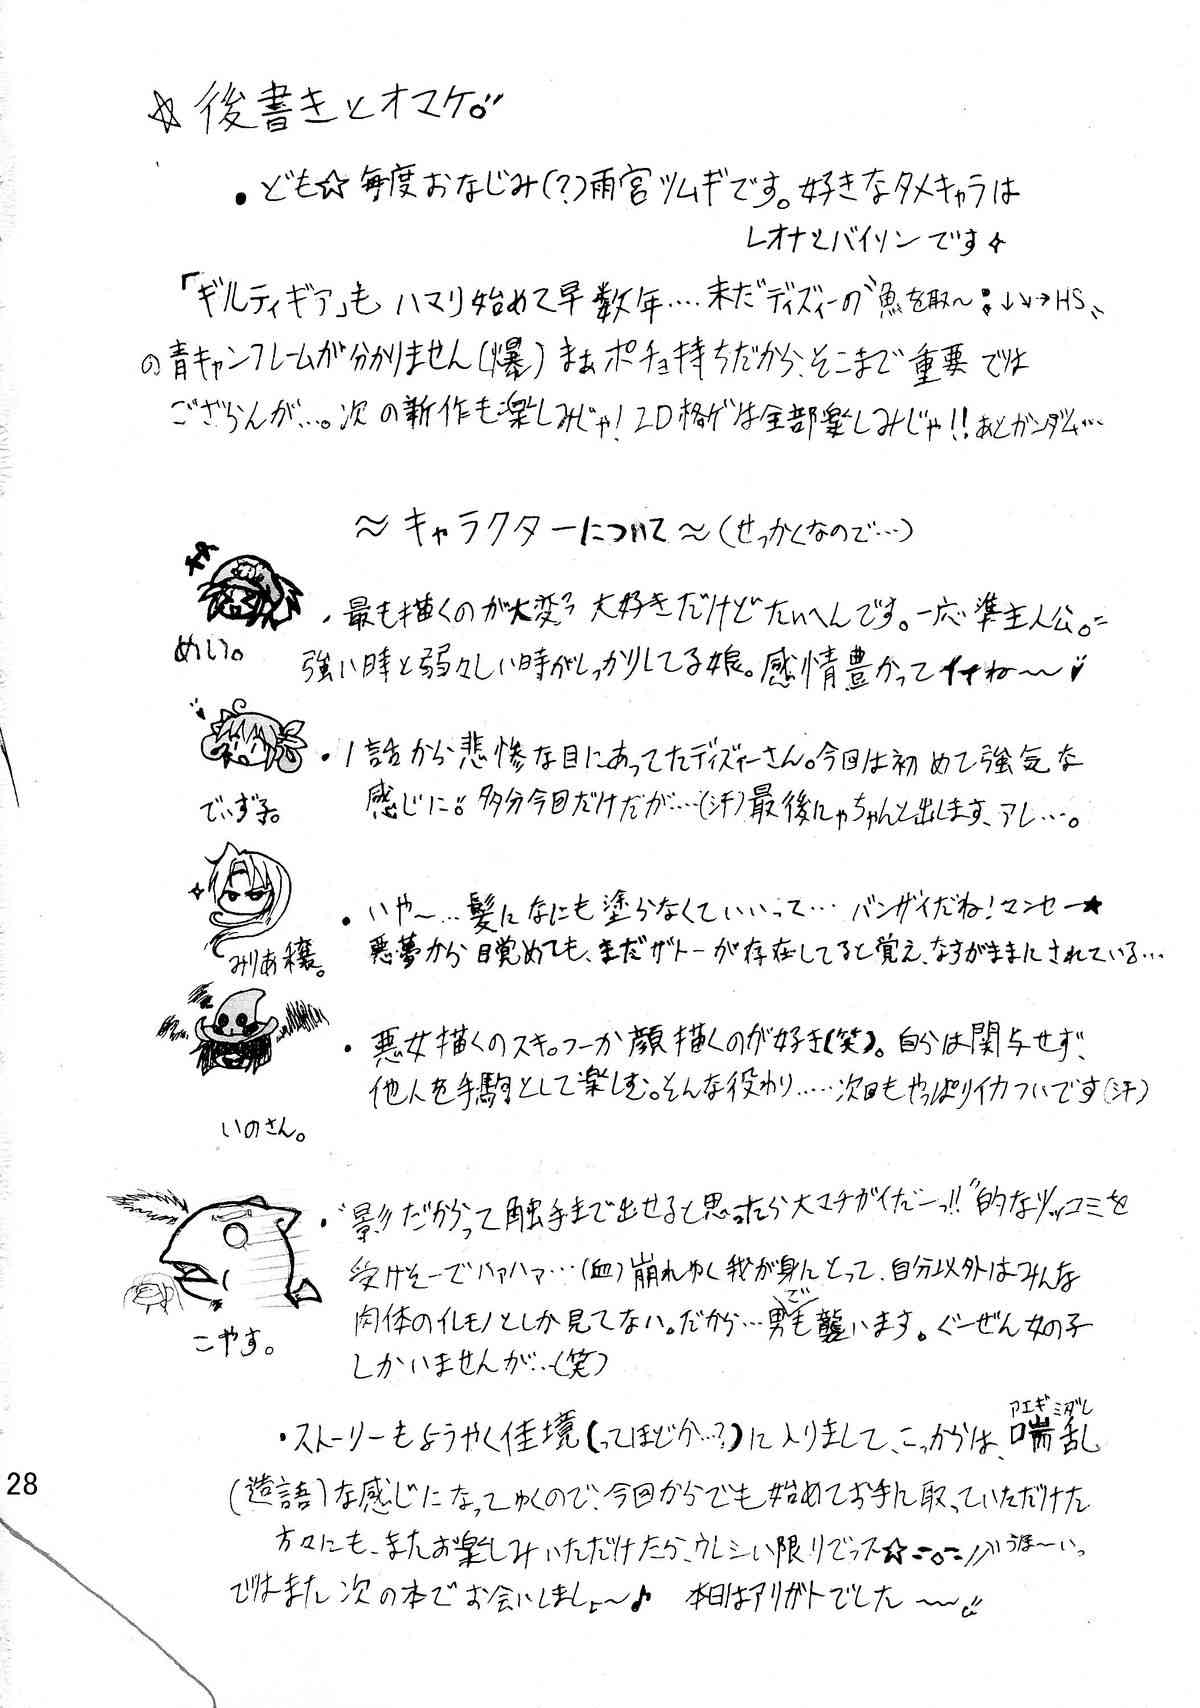 ☆後書きとオマケ。
・ども☆毎度おなじみ(?)雨宮ツムギです。好きなタメキャラは
レオナとバイソンです✧
「ギルティギア」もハマリ始めて早数年....未だ"ディズィーの"魚を取〜:↓↘→HS"
の青キャンフレームが分かりません(爆)まぁポチョ持ちだから、そこまで重要では
ござらんが...。次の新作も楽しみじゃ!2D格ゲは全部楽しみじゃ!!あとガンダム...
〜キャラクターについて〜(せっかくなので...)
めい。
・最も描くのが大変? 大好きだけどたいへんです。一応準主人公。
強い時と弱々しい時がしっかりしてる娘。感情豊かってイイね〜〜
でぃず子。
・1話から悲惨な目にあってたディズィーさん。今回は初めて強気な
感じに。多分今回だけだが...(汗)最後にゃちゃんと出します、アレ...。
みりあ穣。
・いや〜...髪になにも塗らなくていいって... バンザイだね!マンセー★
悪夢から目覚めても、まだザトーが存在してると覚え、なすがままにされている...
いのさん。
・悪女描くのスキ。つーか顔描くのが好き(笑)。自分は関与せず、
他人を手駒として楽しむ。そんな役わり.....次回もやっぱりイカついです(汗)
こやす。
・"影だからって触手まで出せると思ったら大マチガイだーっ!!"的なツッコミを
受けそーでハァハァ...(血)崩れゆく我が身にとって、自分以外はみんな
肉体のイレモノとしか見てない。だから...男でも襲います。ぐーぜん女の子
しかいませんが...(笑)
・ストーリーもようやく佳境(ってほどか...?)に入りまして、こっからは、喘乱 アエギミダレ
(造語)な感じになってゆくので、今回からでも始めてお手に取っていただけた
方々にも、またお楽しみいただけたら、ウレシい限りでっス☆ うほ〜いっ
ではまた次の本でお会いしましょ〜♪ 本日はアリガトでした〜〜
28